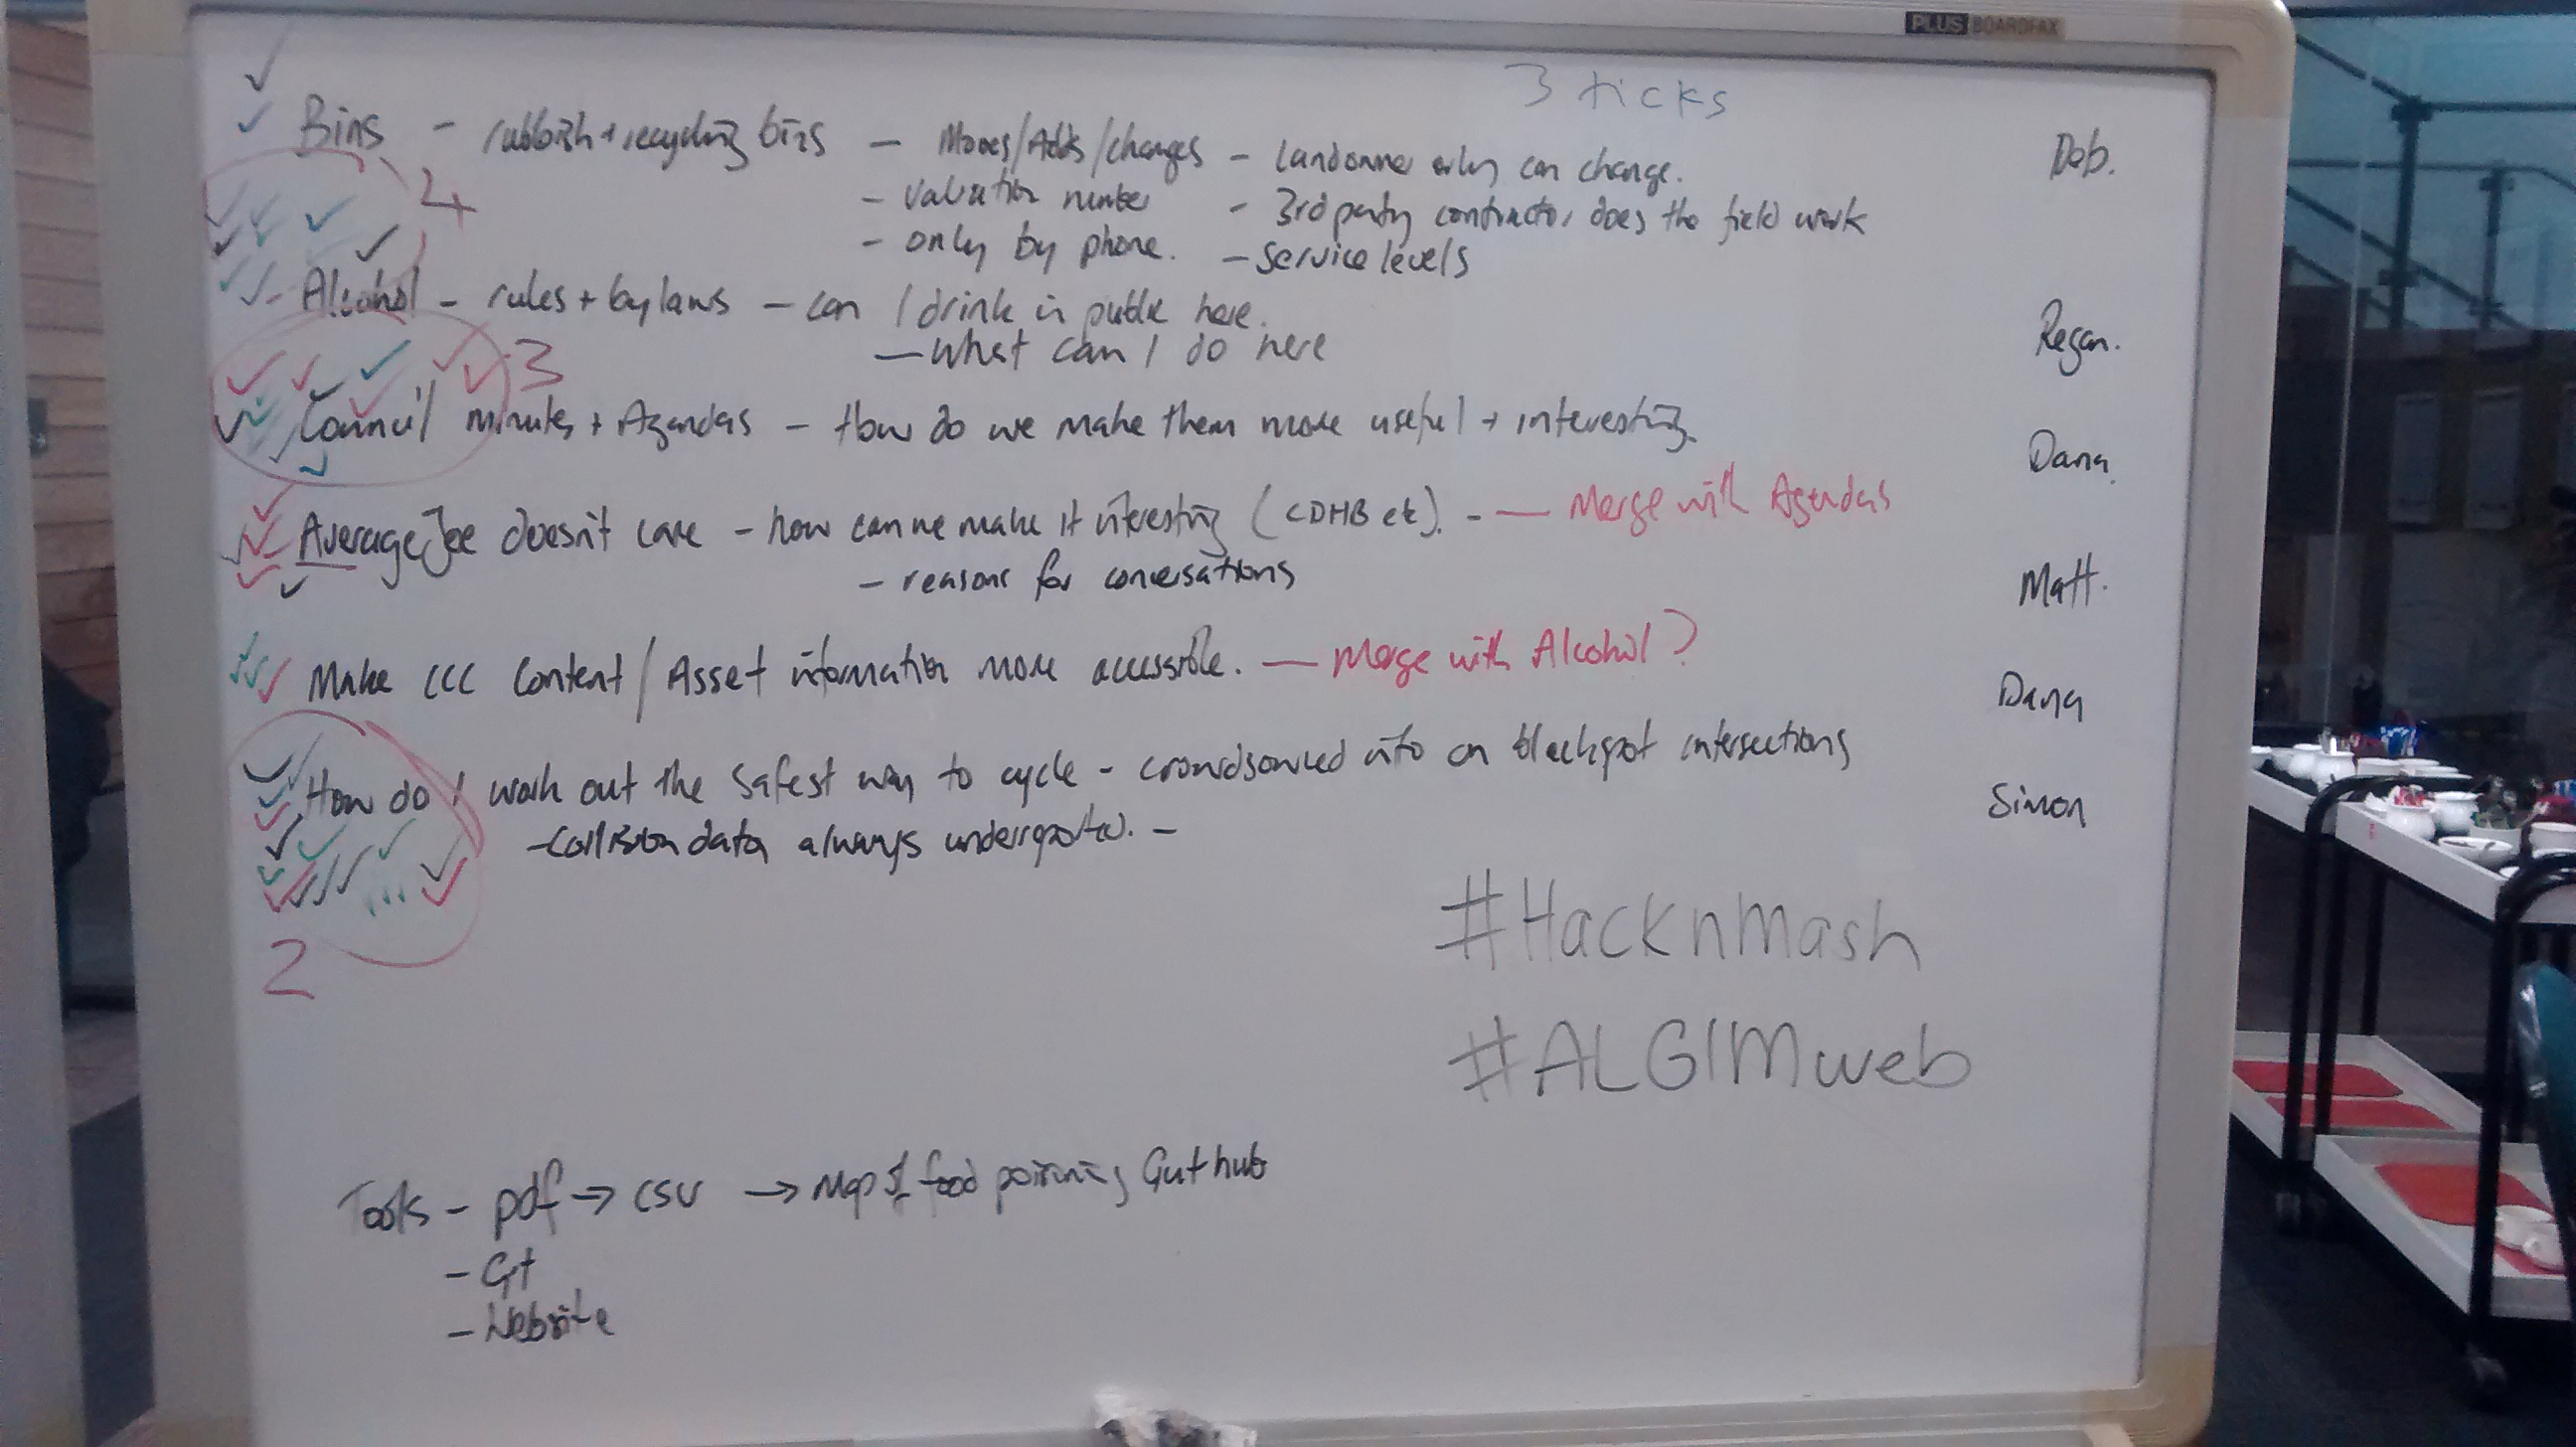 PLUS BOARDFAX
3 ticks
Bins - rubbish + recycling bins - Moves/Adds/changes - landowner only can change. Deb.
- Valuation number - 3rd party contractor does the field work
- only by phone. - service levels
4
Alcohol - rules + bylaws - can I drink in public here. Regan.
- What can I do here
3
Council minutes + Agendas - How do we make them more useful + interesting. Dana
Average Joe doesn't care - how can we make it interesting (CDHB etc). - — Merge with Agendas
- reasons for conversations Matt.
Make CCC Content / Asset information more accessible. — Merge with Alcohol? Dana
How do I work out the safest way to cycle - crowdsourced info on blackspot intersections Simon
- Collision data always underreported. -
2
#HacknMash
#ALGIMweb
Tools - pdf → csv → Map of food poisoning Guthub
- Git
- Website